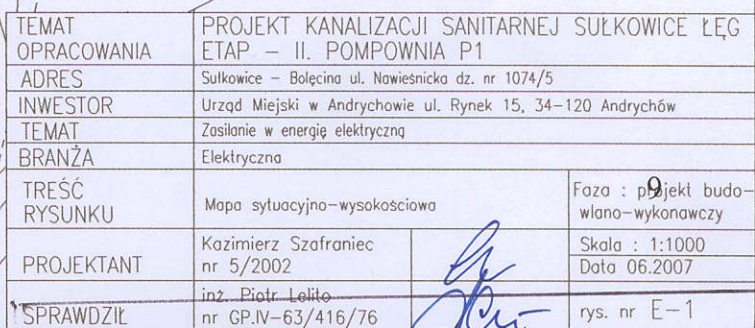 TEMAT OPRACOWANIA
PROJEKT KANALIZACJI SANITARNEJ SUŁKOWICE ŁĘG
ETAP – II. POMPOWNIA P1
ADRES
Sułkowice – Bolęcina ul. Nawieśnicka dz. nr 1074/5
INWESTOR
Urząd Miejski w Andrychowie ul. Rynek 15, 34–120 Andrychów
TEMAT
Zasilanie w energię elektryczną
BRANŻA
Elektryczna
TREŚĆ
RYSUNKU
Mapa sytuacyjno–wysokościowa
Faza : projekt budo–
wlano–wykonawczy
9
PROJEKTANT
Kazimierz Szafraniec
nr 5/2002
Skala : 1:1000
Data 06.2007
SPRAWDZIŁ
inż. Piotr Lelito
nr GP.IV–63/416/76
rys. nr E–1